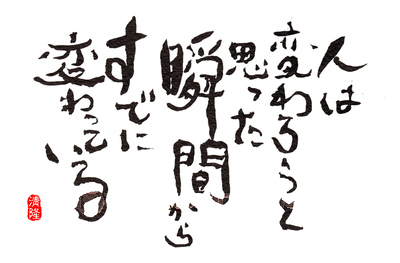 人は
変わろうと
思った
瞬間から
すでに
変わっている
清隆